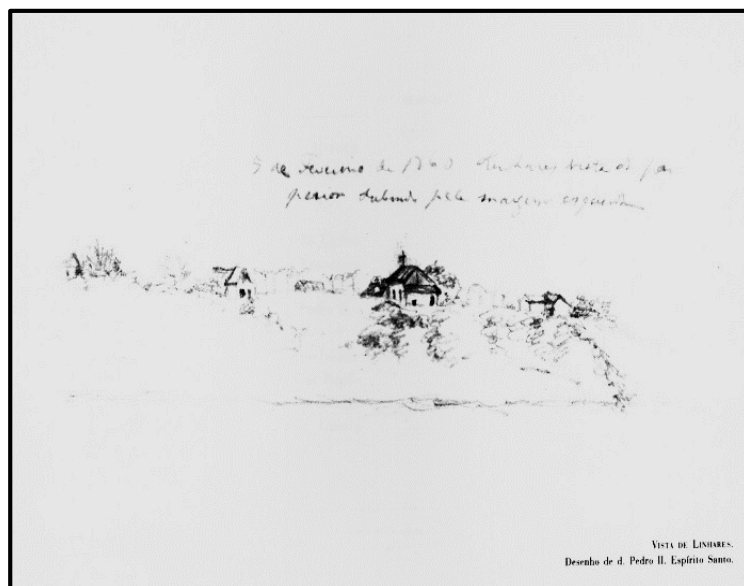 5 de Fevereiro de 1860 Linhares vista
subindo pela margem esquerda
VISTA DE LINHARES.
Desenho de d. Pedro II. Espírito Santo.